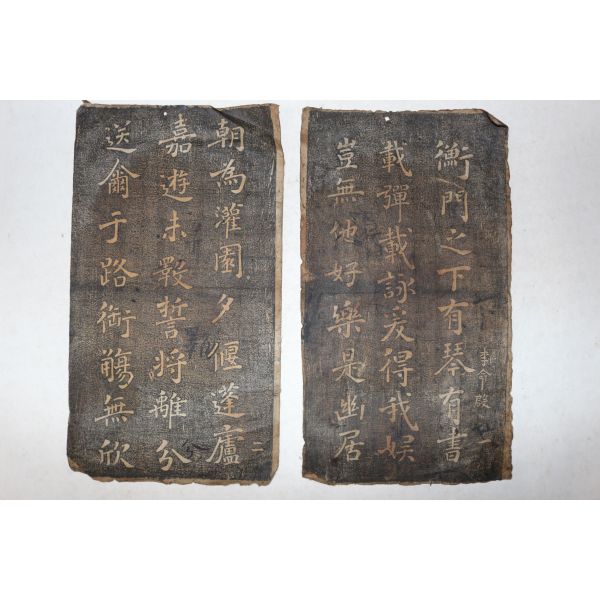 衡門之下有琴有書
一
載彈載詠爰得我娛
豈無他好樂是幽居
朝為灌園夕偃蓬廬
二
嘉遊未斁誓將離分
送爾于路銜觴無欣